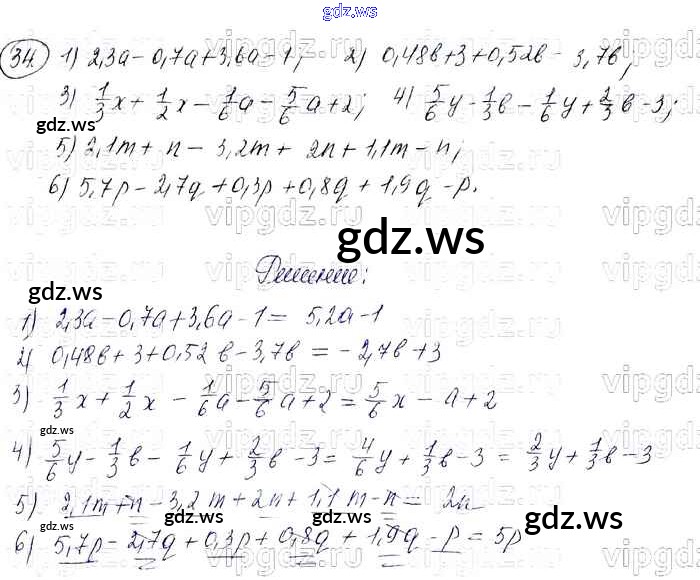 gdz.ws
34. 1) 2,3a - 0,7a + 3,6a - 1; 2) 0,48в + 3 + 0,52в - 3,7в;
3) 1/3 x + 1/2 x - 1/6 a - 5/6 a + 2; 4) 5/6 y - 1/3 в - 1/6 y + 2/3 в - 3;
5) 2,1m + n - 3,2m + 2n + 1,1m - n;
6) 5,7p - 2,7q + 0,3p + 0,8q + 1,9q - p.
Решение:
1) 2,3a - 0,7a + 3,6a - 1 = 5,2a - 1
2) 0,48в + 3 + 0,52 в - 3,7в = - 2,7в + 3
3) 1/3 x + 1/2 x - 1/6 a - 5/6 a + 2 = 5/6 x - a + 2
4) 5/6 y - 1/3 в - 1/6 y + 2/3 в - 3 = 4/6 y + 1/3 в - 3 = 2/3 y + 1/3 в - 3
5) 2,1m + n - 3,2m + 2n + 1,1m - n = 2n
6) 5,7p - 2,7q + 0,3p + 0,8q + 1,9q - p = 5p
gdz.ws
gdz.ws
gdz.ws
gdz.ws
gdz.ws
gdz.ws
gdz.ws
gdz.ws
vipgdz